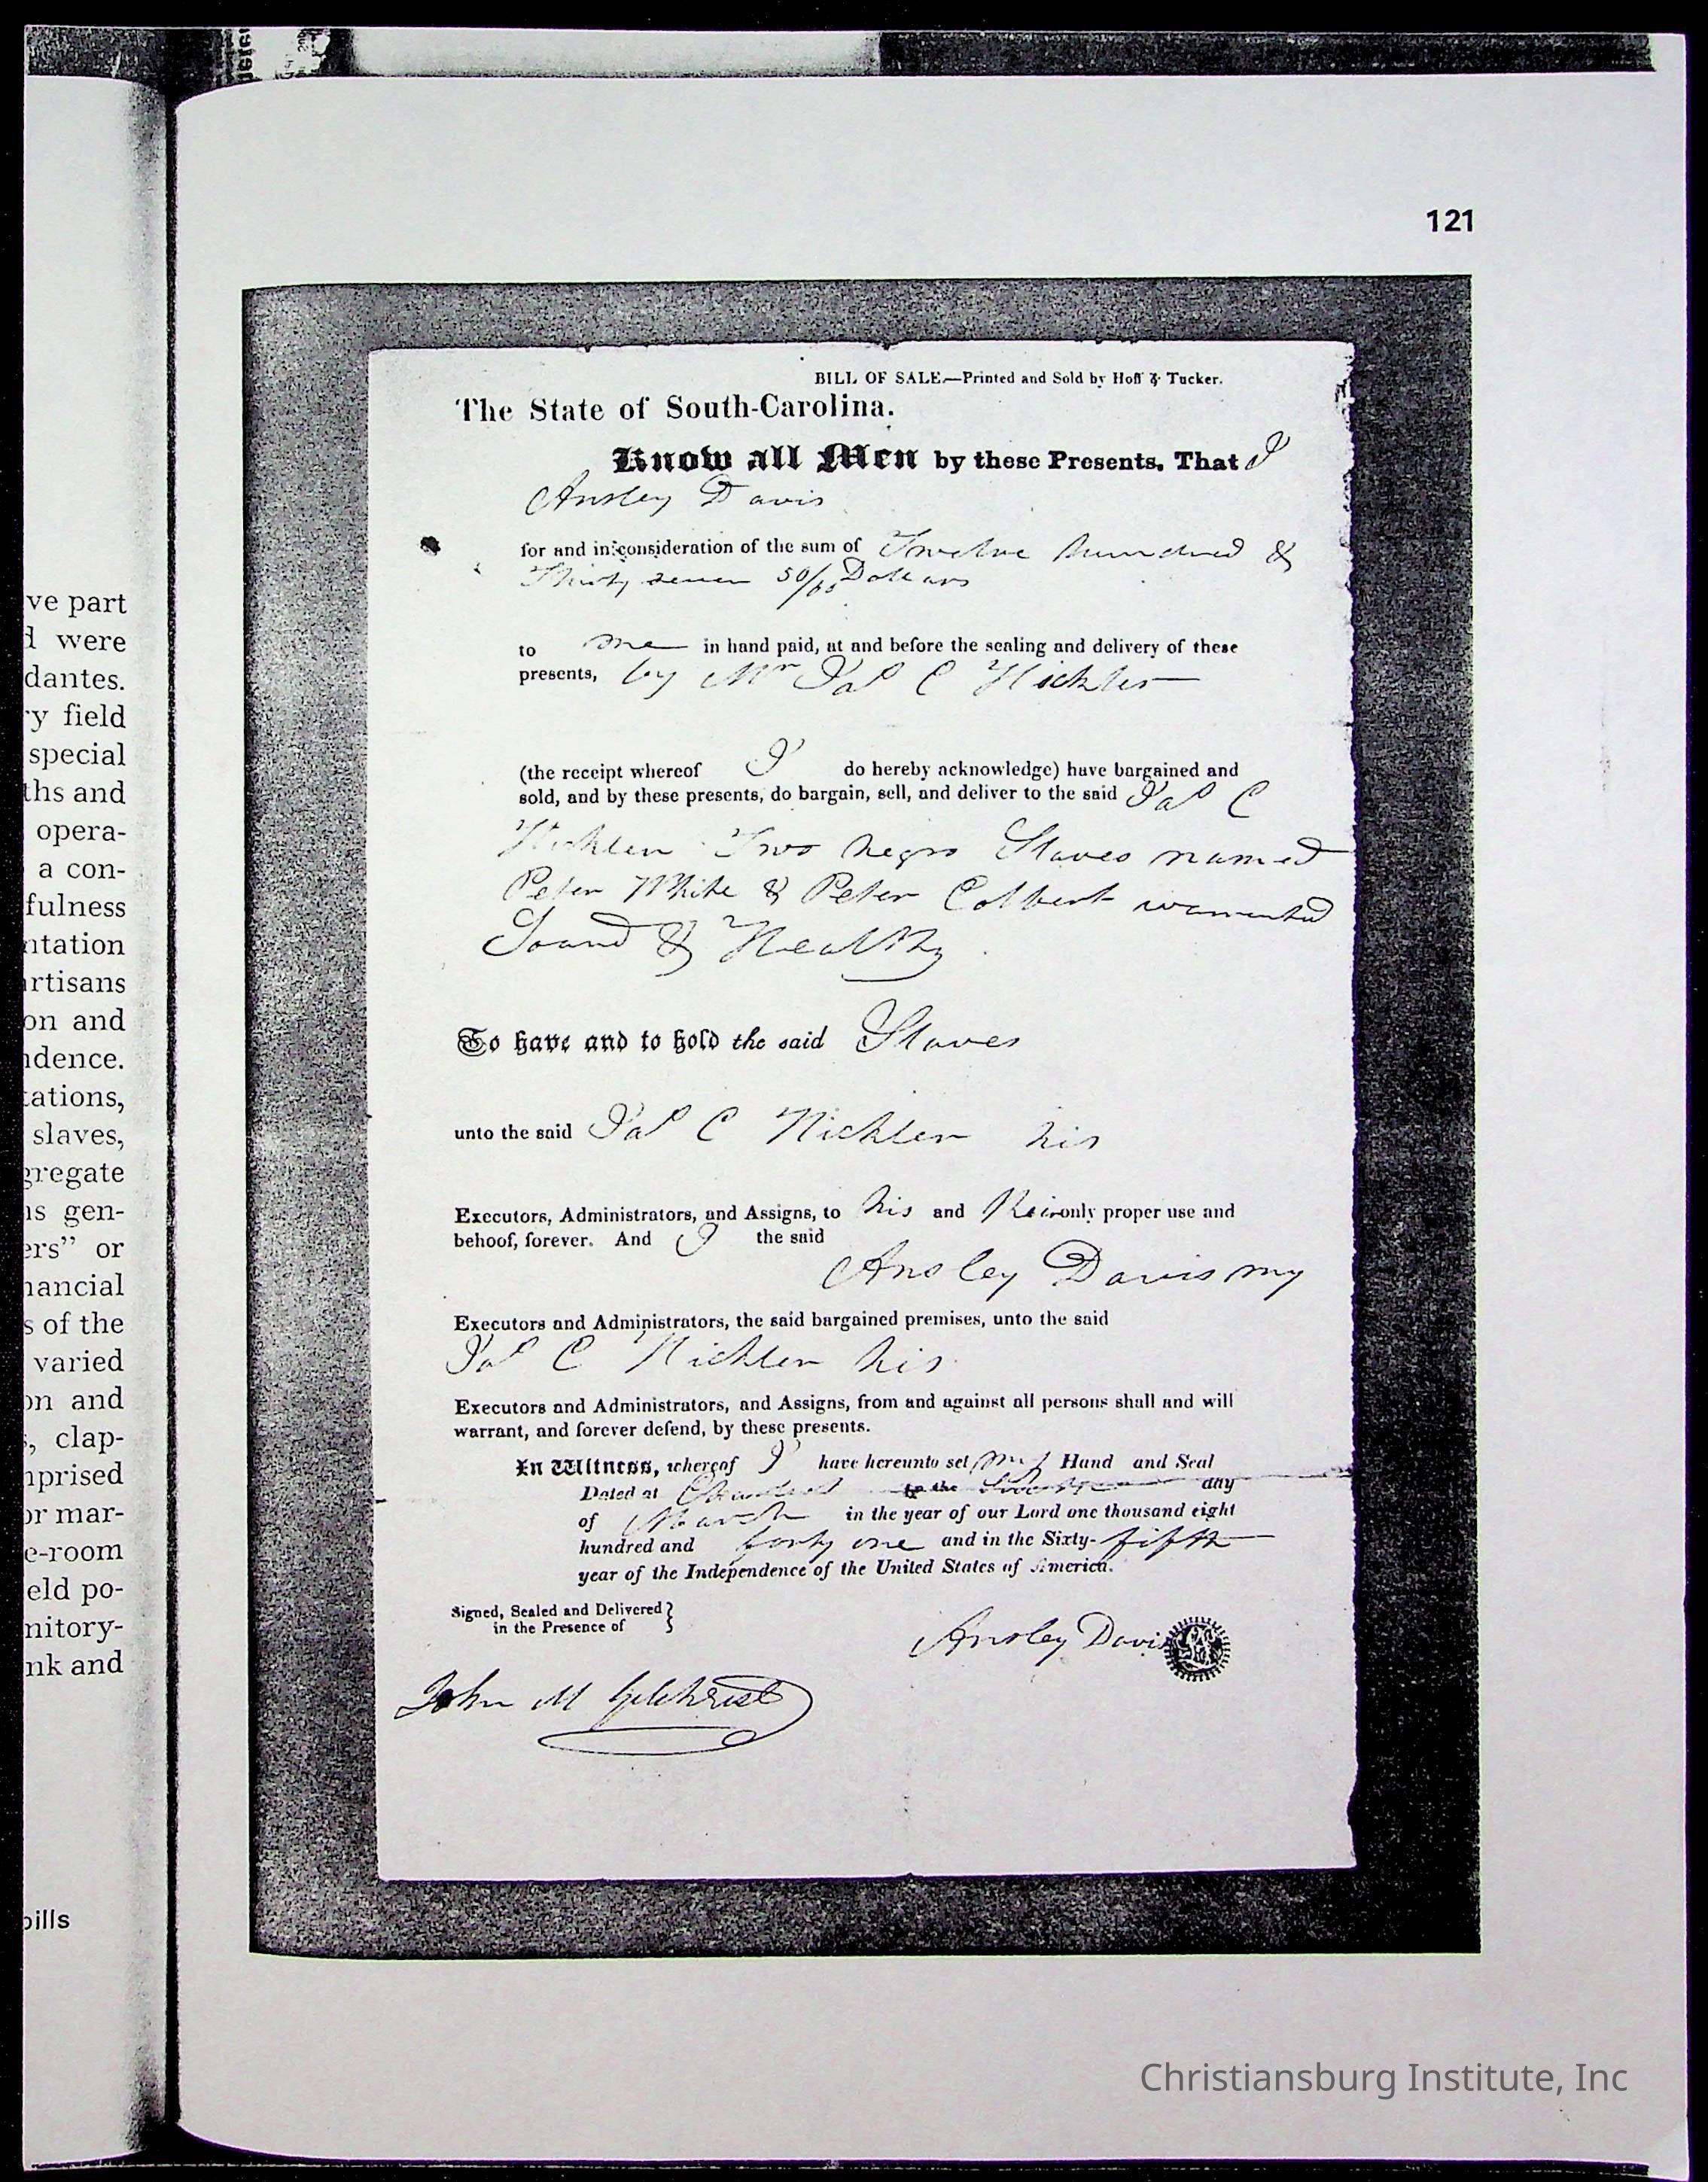 121
ve part
d were
dantes.
ry field
special
ths and
opera-
a con-
fulness
ntation
artisans
on and
ndence.
tations,
slaves,
gregate
ns gen-
ers" or
nancial
s of the
varied
on and
s, clap-
mprised
or mar-
e-room
eld po-
mitory-
nk and
bills
BILL OF SALE.—Printed and Sold by Hoff & Tucker.
The State of South-Carolina.
Know all Men by these Presents, That I
Ansley Davis
for and in consideration of the sum of Twelve hundred &
Thirty seven 50/100 Dollars
to me in hand paid, at and before the sealing and delivery of these
presents, by Mr Jas C
(the receipt whereof I do hereby acknowledge) have bargained and
sold, and by these presents, do bargain, sell, and deliver to the said Jas C
Two negro Slaves named
Peter White & Peter Colbert warranted
Sound & Healthy
To have and to hold the said Slaves
unto the said Jas C his
Executors, Administrators, and Assigns, to his and their only proper use and
behoof, forever. And I the said
Ansley Davis my
Executors and Administrators, the said bargained premises, unto the said
Jas C his
Executors and Administrators, and Assigns, from and against all persons shall and will
warrant, and forever defend, by these presents.
In Witness, whereof I have hereunto set my Hand and Seal
Dated at the day
of March in the year of our Lord one thousand eight
hundred and forty one and in the Sixty-fifth
year of the Independence of the United States of America.
Signed, Sealed and Delivered }
in the Presence of
Ansley Davis
John M Gilchrist
Christiansburg Institute, Inc